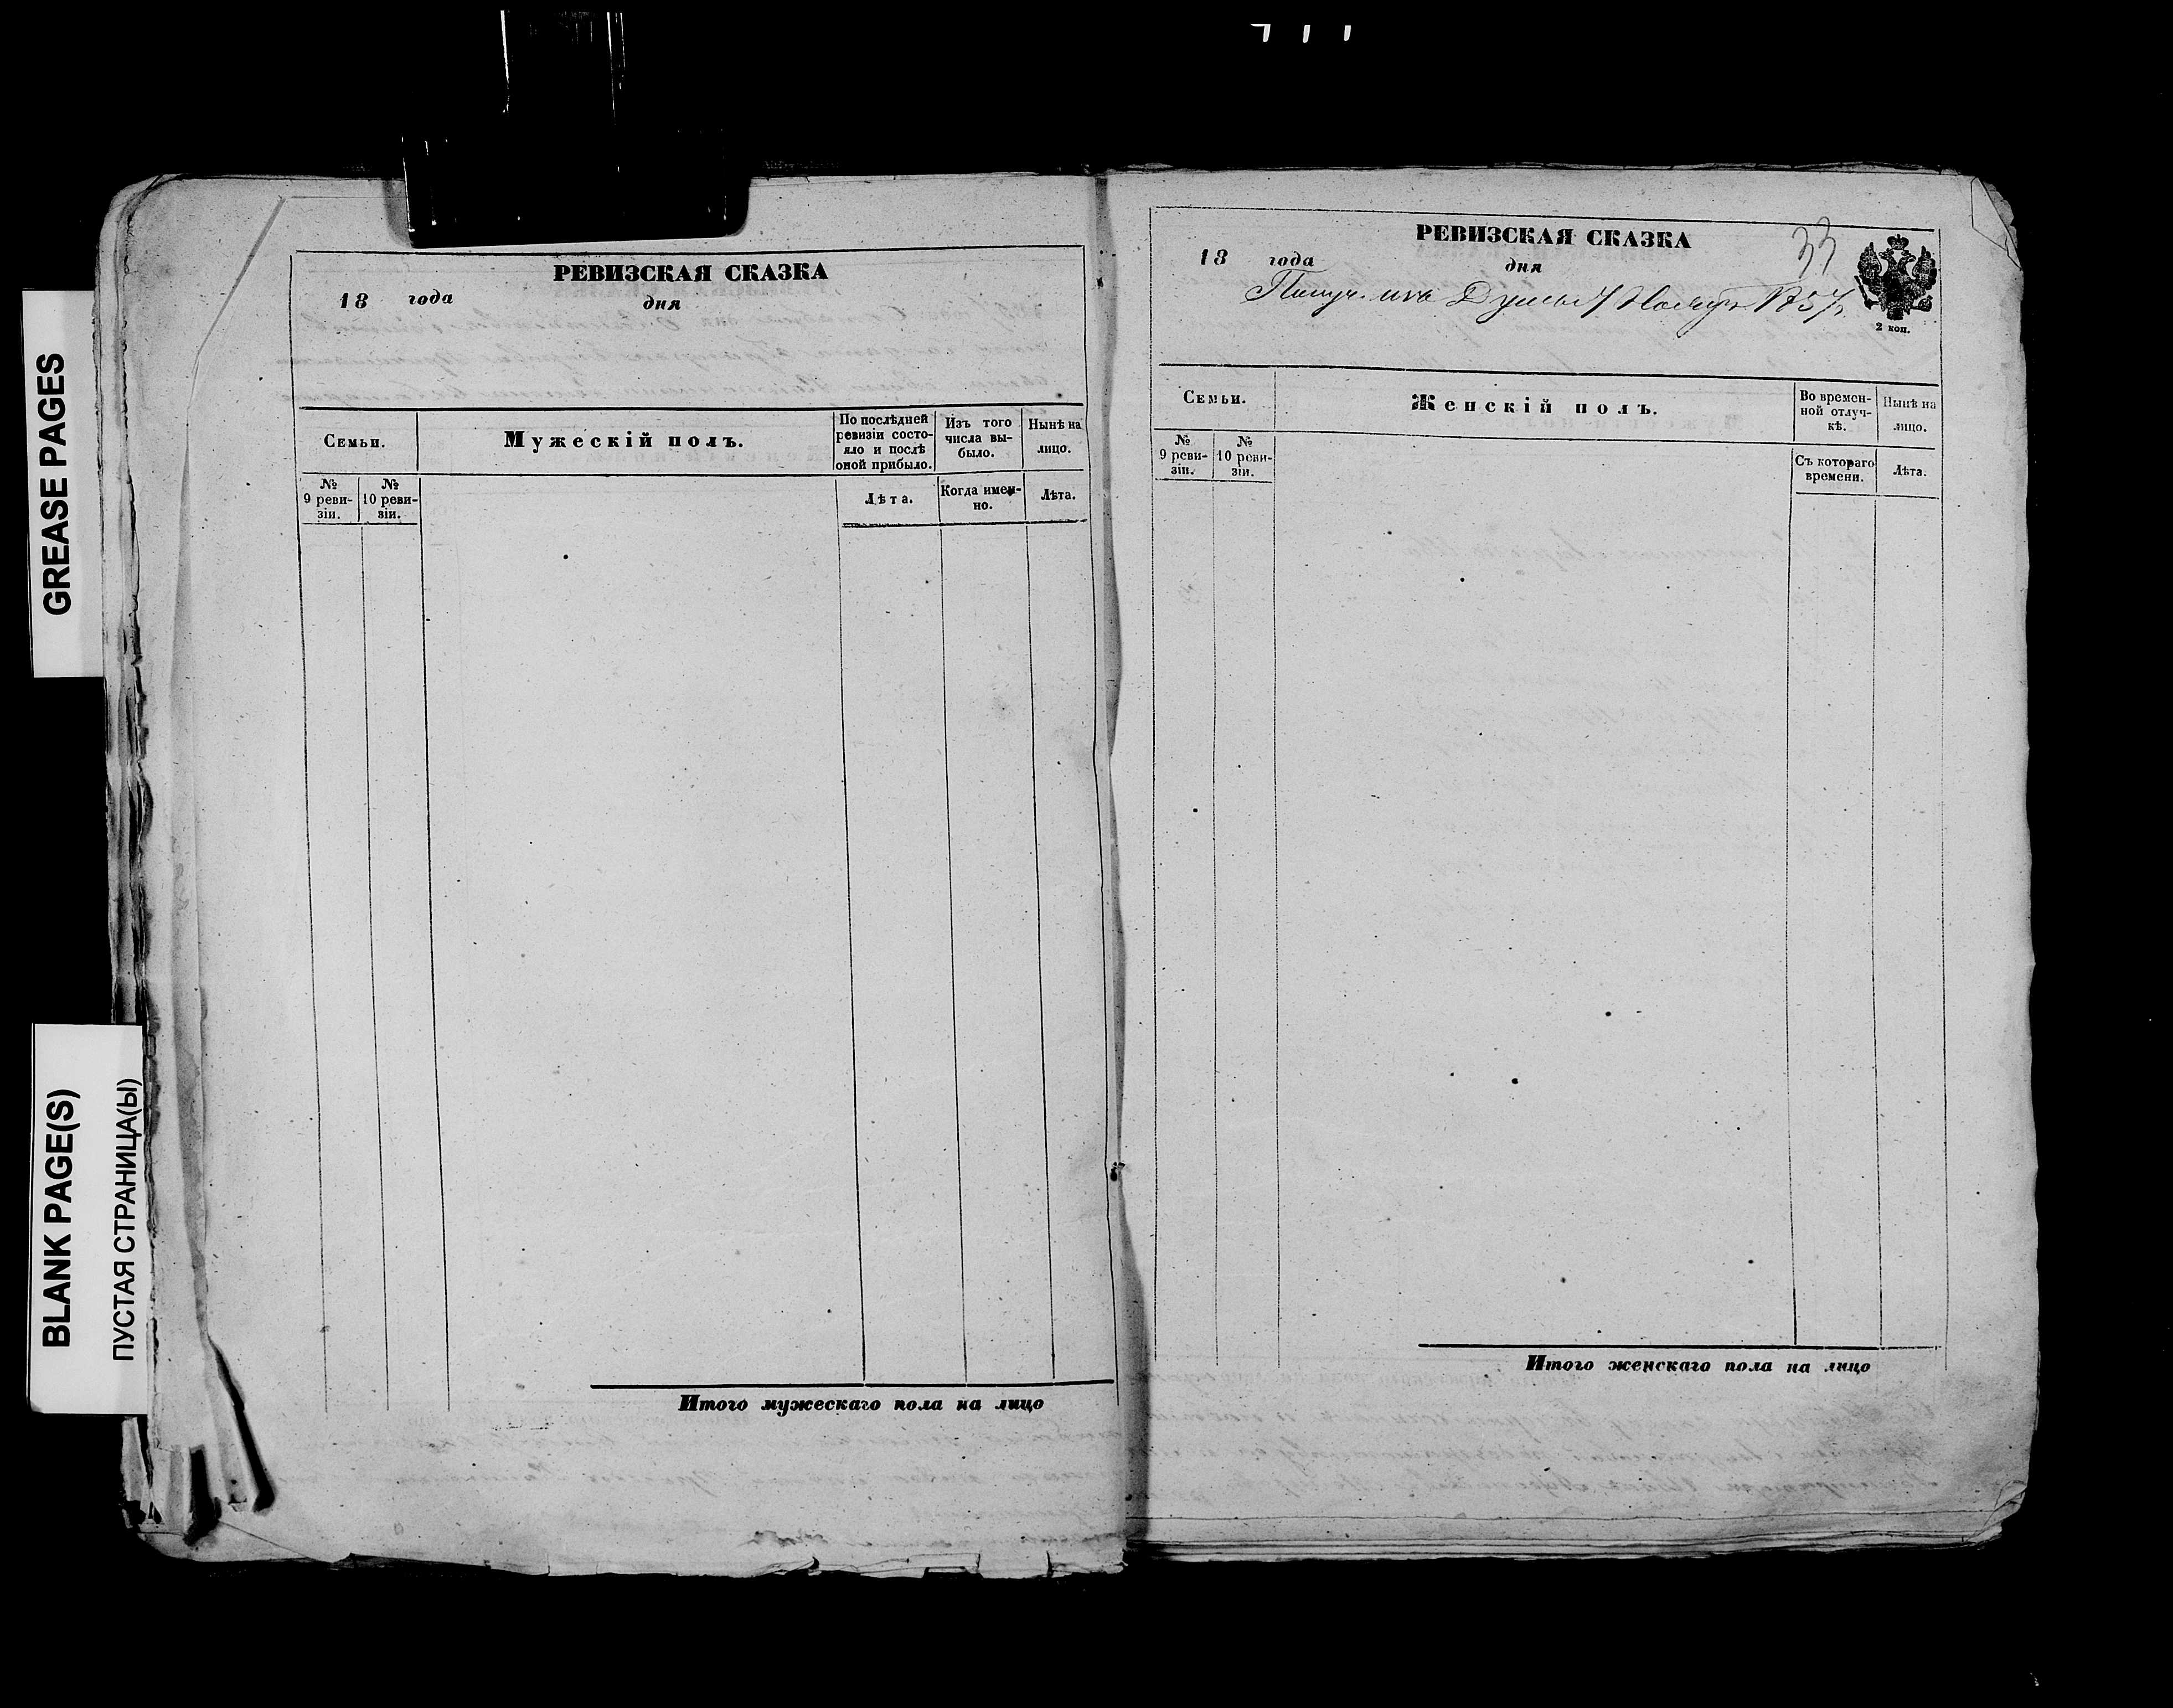 GREASE PAGES
BLANK PAGE(S)
ПУСТАЯ СТРАНИЦА(Ы)
РЕВИЗСКАЯ СКАЗКА
18 года дня
Семьи.
Мужескій полъ.
По послѣдней
ревизіи состо-
яло и послѣ
оной прибыло.
Изъ того
числа вы-
было.
Нынѣ на
лицо.
№
9 реви-
зіи.
№
10 реви-
зіи.
Лѣта.
Когда имен-
но.
Лѣта.
Итого мужескаго пола на лицо
РЕВИЗСКАЯ СКАЗКА
33
18 года дня
1857
2 коп.
Семьи.
Женскій полъ.
Во времен-
ной отлуч-
кѣ.
Нынѣ на
лицо.
№
9 реви-
зіи.
№
10 реви-
зіи.
Съ котораго
времени.
Лѣта.
Итого женскаго пола на лицо